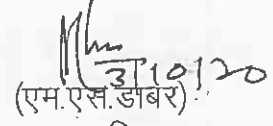 3/10/20
(एम.एस.डाबर)